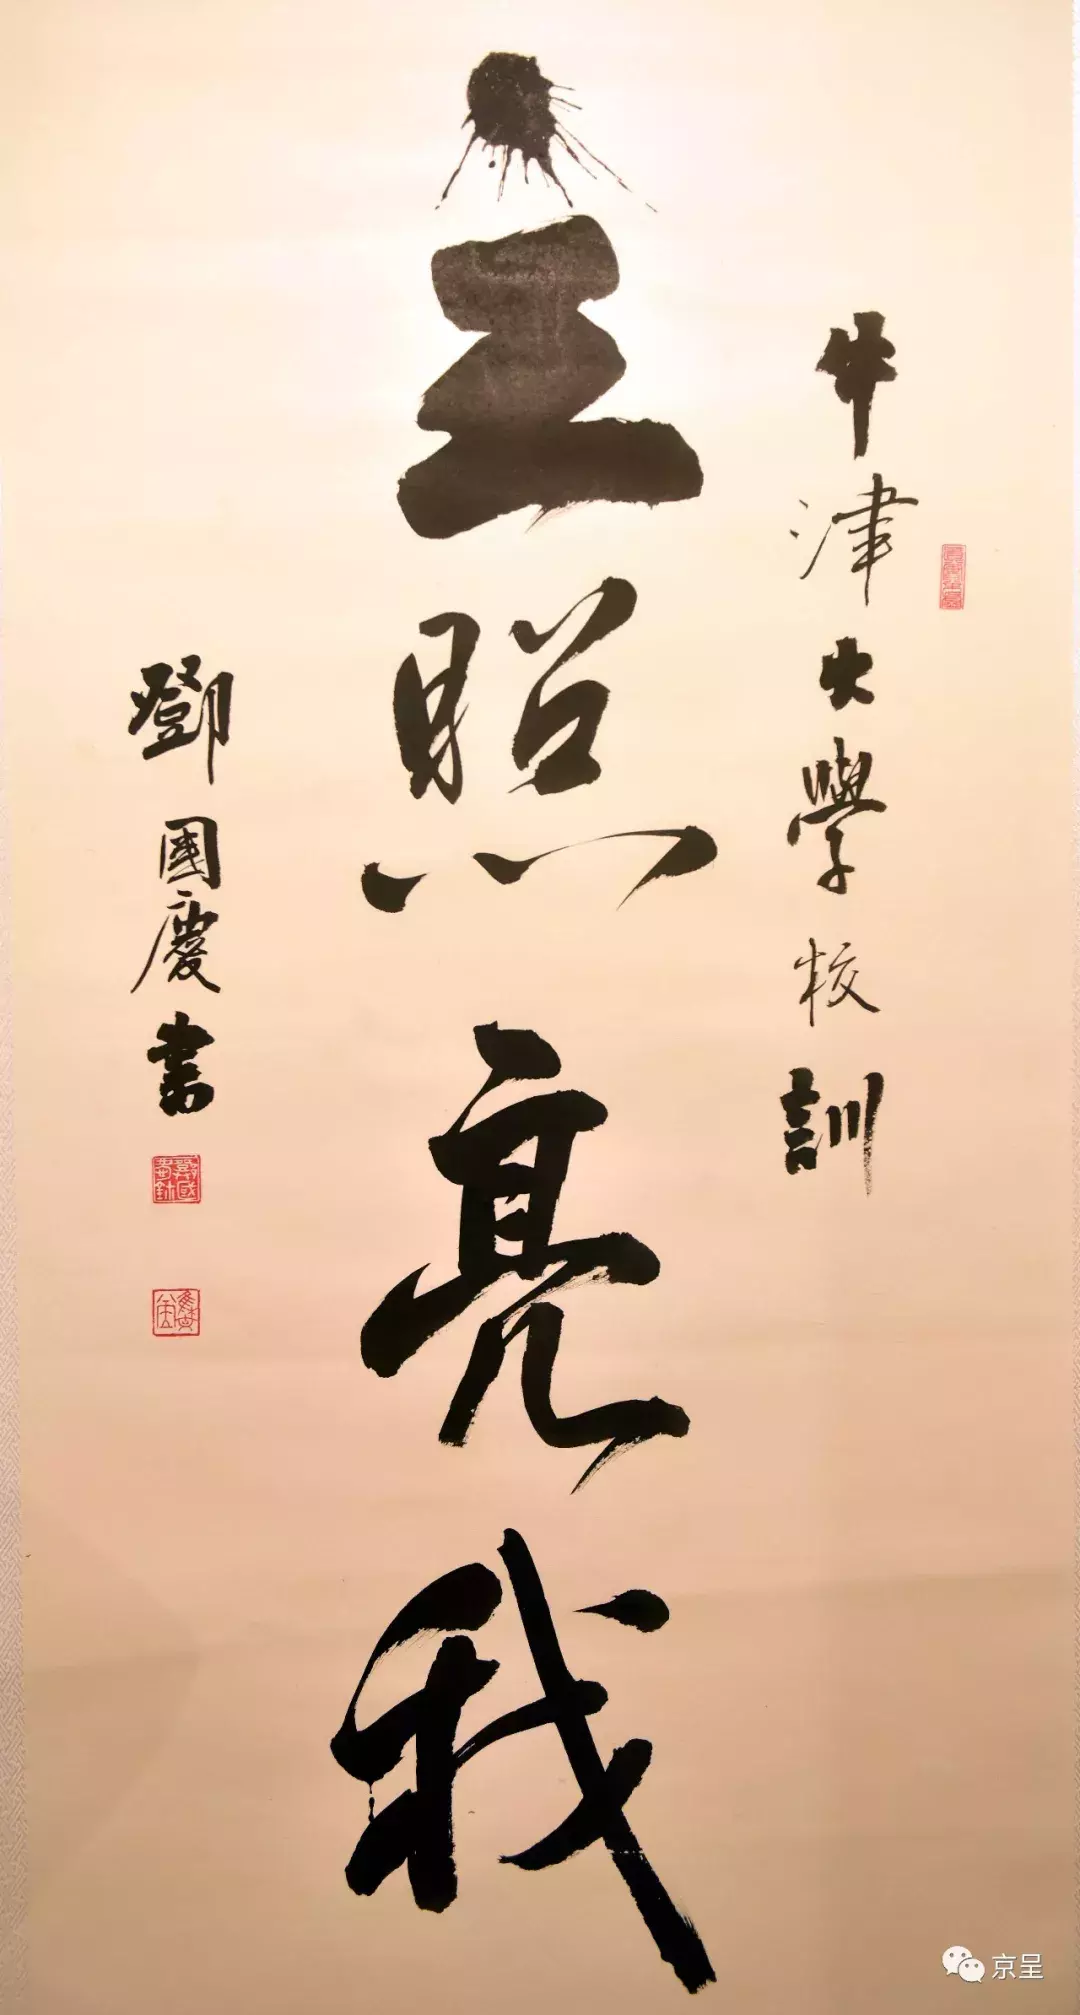 牛津大學校訓
主照亮我
鄧國慶書
京呈